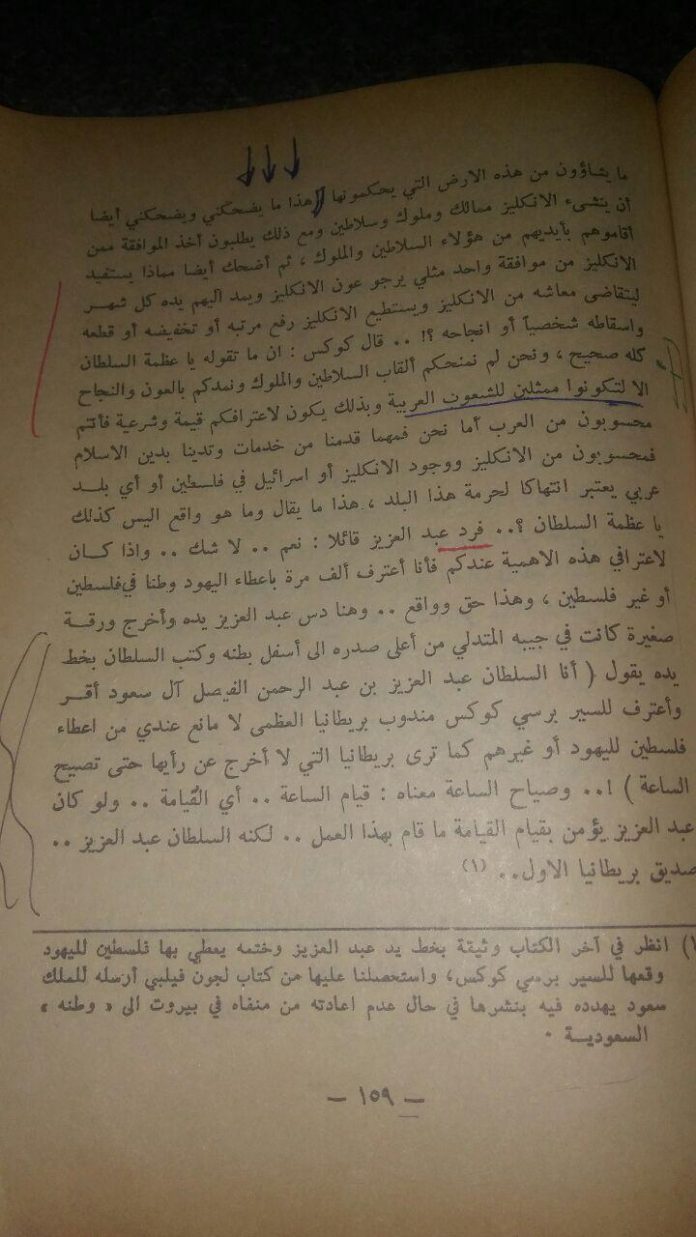 ما يشاؤون من هذه الارض التي يحكمونها هذا ما يضحكني ويضحكني أيضا
أن ينشىء الانكليز ممالك وملوك وسلاطين ومع ذلك يطلبون أخذ الموافقة ممن
أقاموهم بأيديهم من هؤلاء السلاطين والملوك ، ثم أضحك أيضا مماذا يستفيد
الانكليز من موافقة واحد مثلي يرجو عون الانكليز ويمد اليهم يده كل شهر
ليتقاضى معاشه من الانكليز ويستطيع الانكليز رفع مرتبه أو تخفيضه أو قطعه
واسقاطه شخصياً أو انجاحه ؟! .. قال كوكس : ان ما تقوله يا عظمة السلطان
كله صحيح ، ونحن لم نمنحكم ألقاب السلاطين والملوك ونمدكم بالعون والنجاح
الا لتكونوا ممثلين للشعوب العربية وبذلك يكون لاعترافكم قيمة وشرعية فأنتم
محسوبون من العرب أما نحن فمهما قدمنا من خدمات وتدينا بدين الاسلام
فمحسوبون من الانكليز ووجود الانكليز أو اسرائيل في فلسطين أو أي بلد
عربي يعتبر انتهاكا لحرمة هذا البلد ، هذا ما يقال وما هو واقع اليس كذلك
يا عظمة السلطان ؟.. فرد عبد العزيز قائلا : نعم .. لا شك .. واذا كان
لاعترافي هذه الاهمية عندكم فأنا أعترف ألف مرة باعطاء اليهود وطنا في فلسطين
أو غير فلسطين ، وهذا حق وواقع .. وهنا دس عبد العزيز يده وأخرج ورقة
صغيرة كانت في جيبه المتدلي من أعلى صدره الى أسفل بطنه وكتب السلطان بخط
يده يقول ( أنا السلطان عبد العزيز بن عبد الرحمن الفيصل آل سعود أقر
وأعترف للسير برسي كوكس مندوب بريطانيا العظمى لا مانع عندي من اعطاء
فلسطين لليهود أو غيرهم كما ترى بريطانيا التي لا أخرج عن رأيها حتى تصيح
الساعة ) !.. وصياح الساعة معناه : قيام الساعة .. أي القيامة .. ولو كان
عبد العزيز يؤمن بقيام القيامة ما قام بهذا العمل .. لكنه السلطان عبد العزيز ..
صديق بريطانيا الاول.. (١)
١) انظر في آخر الكتاب وثيقة بخط يد عبد العزيز وختمه يعطي بها فلسطين لليهود
وقعها للسير برسي كوكس، واستحصلنا عليها من كتاب لجون فيلبي أرسله للملك
سعود يهدده فيه بنشرها في حال عدم اعادته من منفاه في بيروت الى « وطنه »
السعودية .
— ١٥٩ —